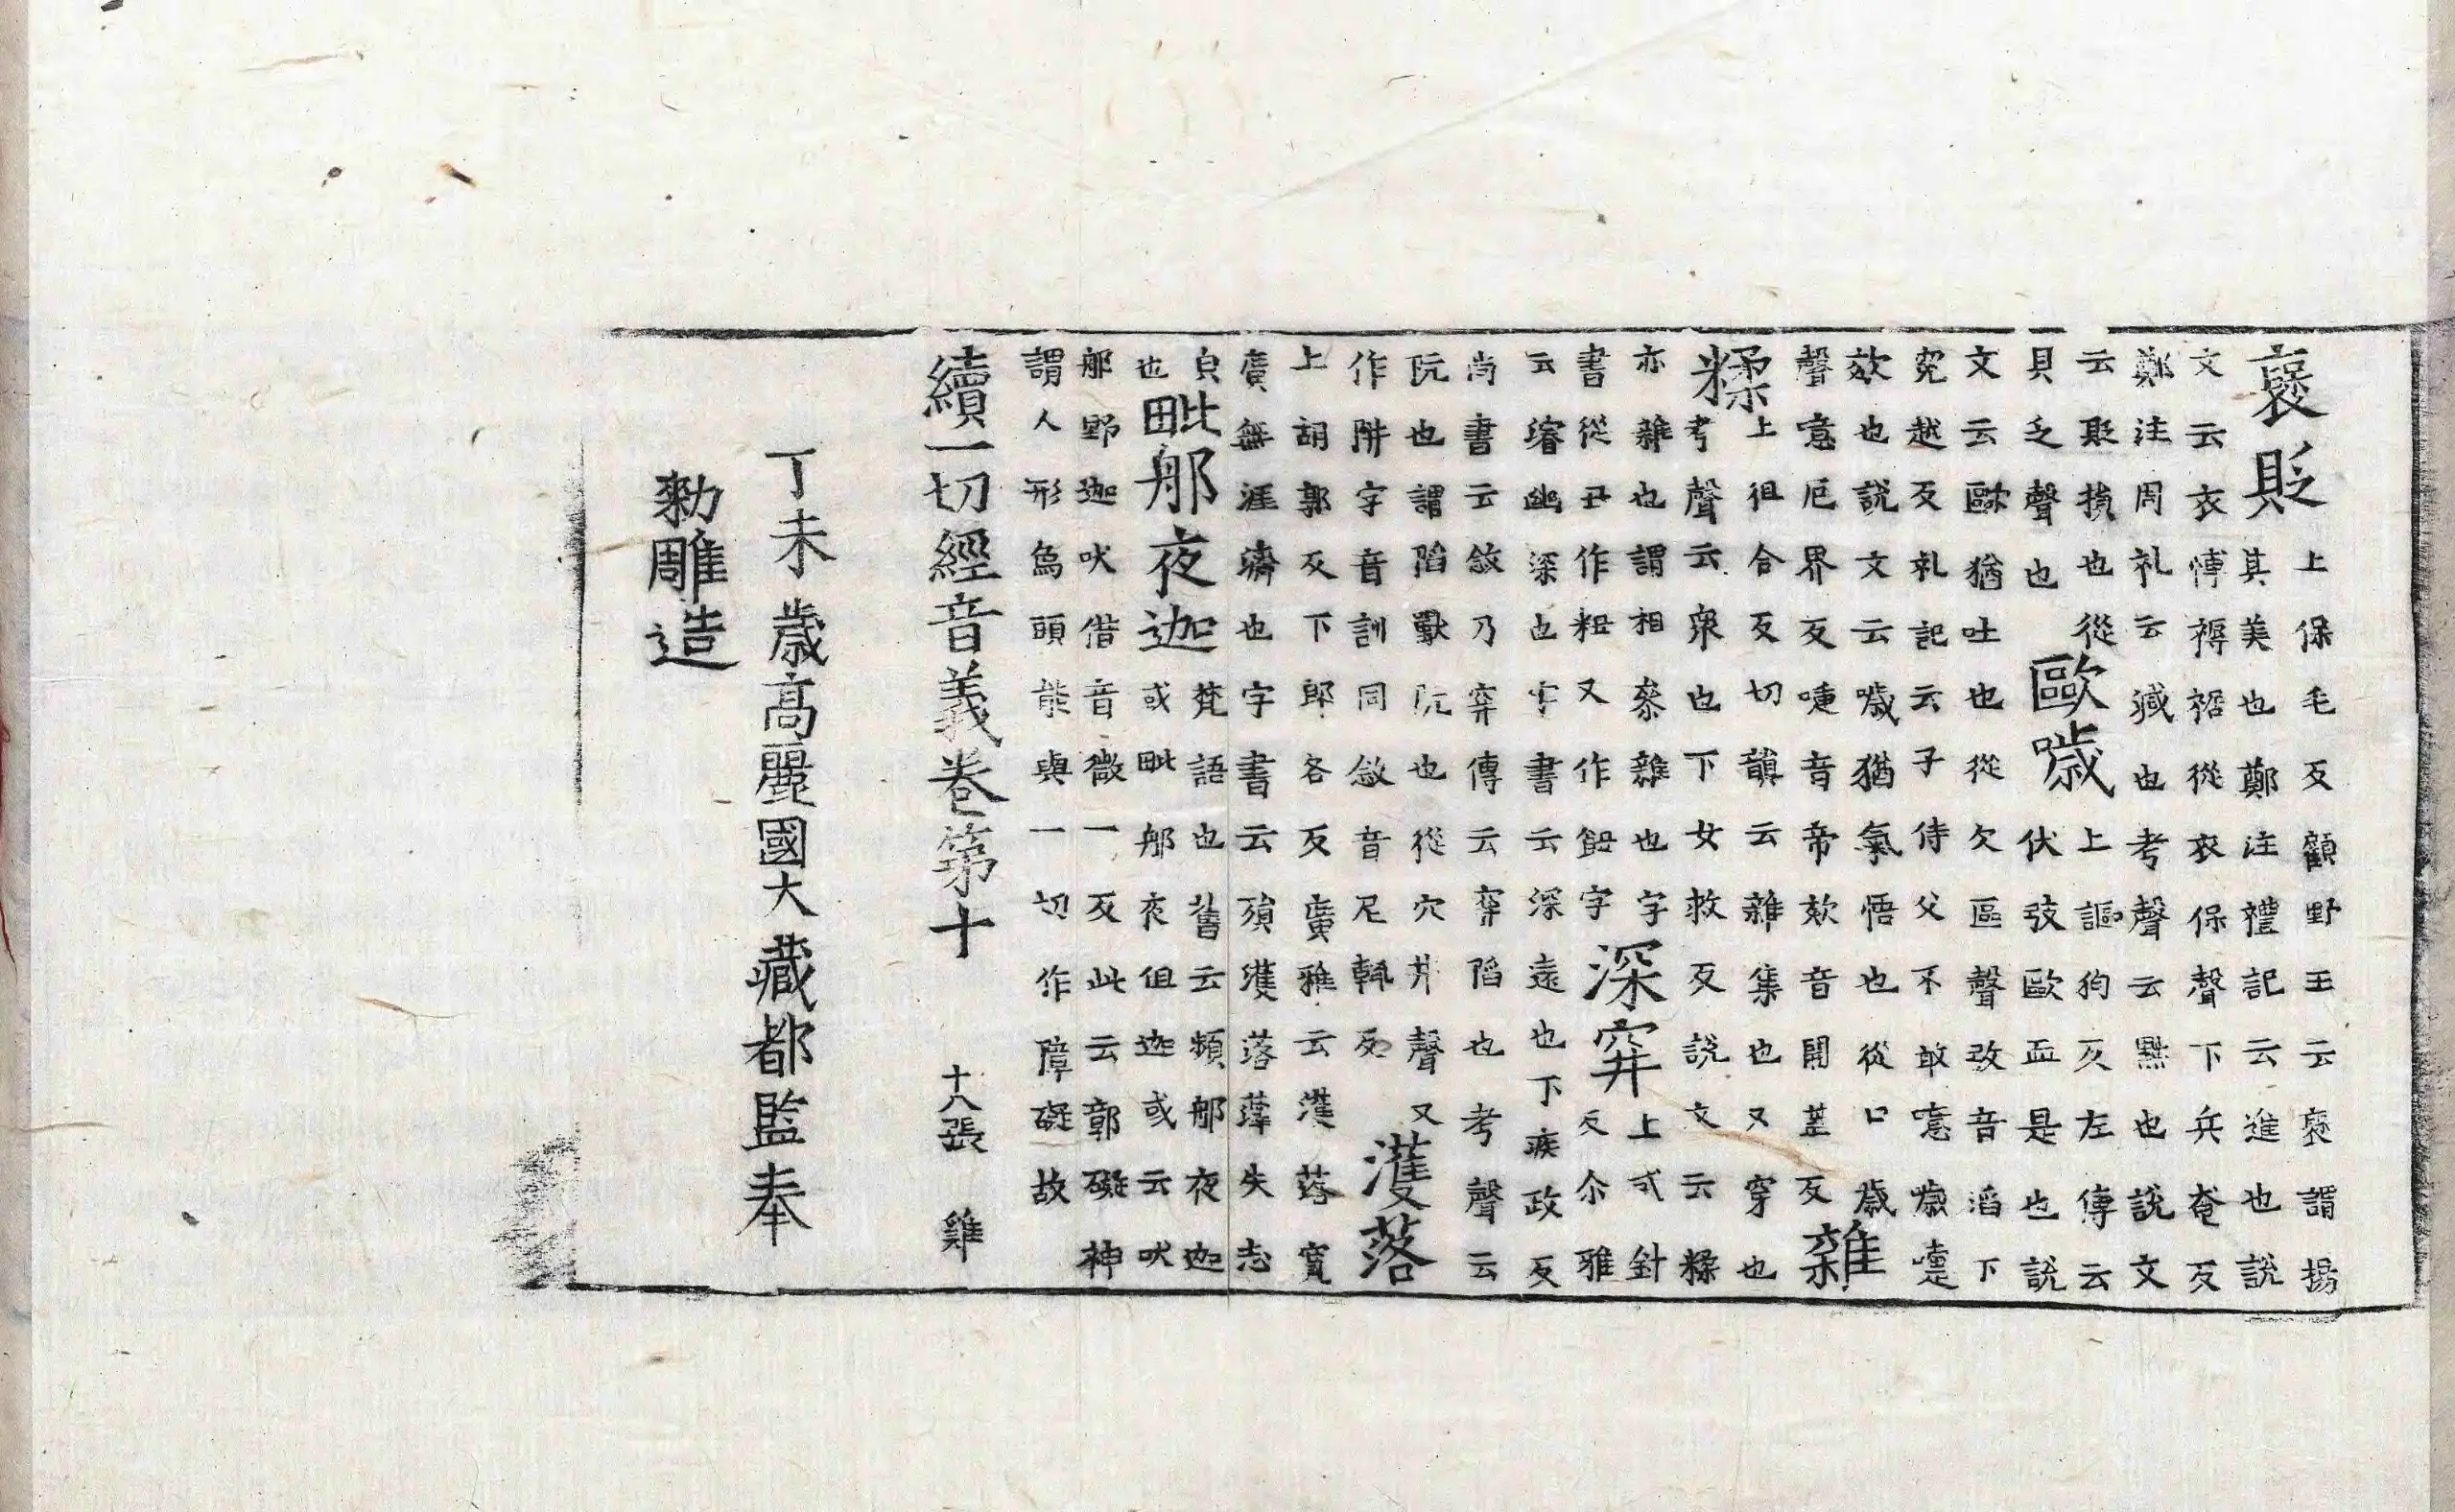 褒貶上保毛反顧野王云褒謂揚
其美也鄭注禮記云進也說
文云衣慱褥裾從衣保聲下兵奄反
鄭注周礼云減也考聲云黜也說文
云貶損也從
貝乏聲也
歐噦上謳狗反左傳云
伏弢歐血是也說
文云歐猶吐也從欠區聲弢音滔下
冤越反礼記云子侍父不敢噫噦嚏
欬也說文云噦猶氣悟也從口歲
聲噫厄界反嚏音帝欬音開蓋反
雜
糅上徂合切反韻云雜集也又穿也
考聲云衆也下女救反說文云糅
亦雜也謂相叅雜也字
書從丑作粈又作䬔字
深穽上式針
反尒雅
云濬幽深也字書云深遠也下疾政反
尚書云敜乃穽傳云穽陷也考聲云
阬也謂陷獸阬也從穴井聲又
作阱字音訓同敜音尼輒反
濩落
上胡郭反下郎各反廣雅云濩落寬
廣無涯濟也字書云濩落薄失志
皃
也
毗郍夜迦梵語也舊云頻郍夜迦
或毗郍夜但迦或云吠
郍野迦吠借音微一反此云鄣礙神
謂人形烏頭能與一切作障礙故
續一切經音義卷第十 十八張 雞
丁未歲高麗國大藏都監奉
勑雕造